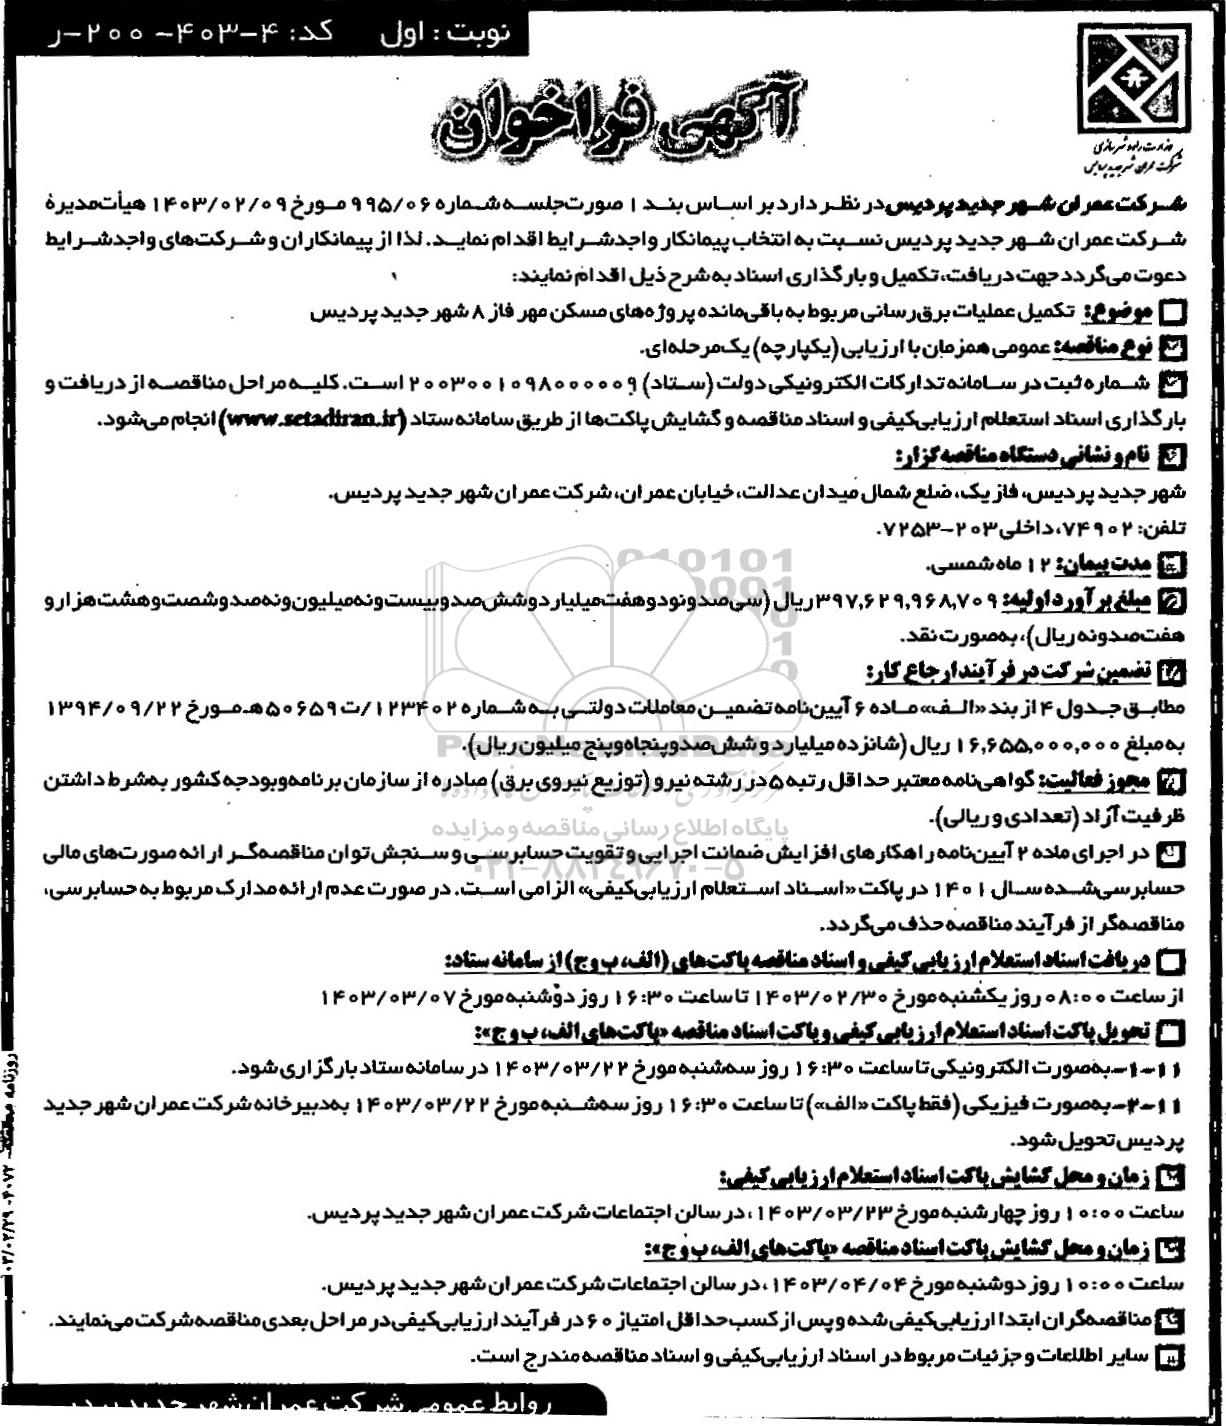 نوبت : اول کد: ۴-۴۰۳-۲۰۰-ر
آگهی فراخوان
وزارت راه و شهرسازی
شرکت عمران شهر جدید پردیس
شرکت عمران شهر جدید پردیس در نظر دارد بر اساس بند ۱ صورت‌جلسه شماره ۹۹۵/۰۶ مورخ ۱۴۰۳/۰۲/۰۹ هیأت‌مدیرهٔ
شرکت عمران شهر جدید پردیس نسبت به انتخاب پیمانکار واجد‌شرایط اقدام نماید. لذا از پیمانکاران و شرکت‌های واجد‌شرایط
دعوت می‌گردد جهت دریافت، تکمیل و بارگذاری اسناد به شرح ذیل اقدام نمایند:
موضوع: تکمیل عملیات برق‌رسانی مربوط به باقی‌مانده پروژه‌های مسکن مهر فاز ۸ شهر جدید پردیس
نوع مناقصه: عمومی همزمان با ارزیابی (یکپارچه) یک‌مرحله‌ای.
شماره ثبت در سامانه تدارکات الکترونیکی دولت (ستاد) ۲۰۰۳۰۰۱۰۹۸۰۰۰۰۰۹ است. کلیه مراحل مناقصه از دریافت و
بارگذاری اسناد استعلام ارزیابی‌کیفی و اسناد مناقصه و گشایش پاکت‌ها از طریق سامانه ستاد (www.setadiran.ir) انجام می‌شود.
نام و نشانی دستگاه مناقصه‌گزار:
شهر جدید پردیس، فاز یک، ضلع شمال میدان عدالت، خیابان عمران، شرکت عمران شهر جدید پردیس.
تلفن: ۷۴۹۰۲، داخلی ۲۰۳-۷۲۵۳.
مدت پیمان: ۱۲ ماه شمسی.
مبلغ برآورد اولیه: ۳۹۷,۶۲۹,۹۶۸,۷۰۹ ریال (سی‌صد و نود و هفت میلیارد و شش‌صد و بیست و نه میلیون و نه‌صد و شصت و هشت هزار و
هفت‌صد و نه ریال)، به‌صورت نقد.
تضمین شرکت در فرآیند ارجاع کار:
مطابق جدول ۴ از بند «الف» ماده ۶ آیین‌نامه تضمین معاملات دولتی به شماره ۱۲۳۴۰۲/ت۵۰۶۵۹هـ مورخ ۱۳۹۴/۰۹/۲۲
به مبلغ ۱۶,۶۵۵,۰۰۰,۰۰۰ ریال (شانزده میلیارد و شش‌صد و پنجاه و پنج میلیون ریال).
مجوز فعالیت: گواهی‌نامه معتبر حداقل رتبه ۵ در رشته نیرو (توزیع نیروی برق) صادره از سازمان برنامه‌وبودجه کشور به‌شرط داشتن
ظرفیت آزاد (تعدادی و ریالی).
در اجرای ماده ۲ آیین‌نامه راهکارهای افزایش ضمانت اجرایی و تقویت حسابرسی و سنجش توان مناقصه‌گر ارائه صورت‌های مالی
حسابرسی‌شده سال ۱۴۰۱ در پاکت «اسناد استعلام ارزیابی‌کیفی» الزامی است. در صورت عدم ارائه مدارک مربوط به حسابرسی،
مناقصه‌گر از فرآیند مناقصه حذف می‌گردد.
دریافت اسناد استعلام ارزیابی کیفی و اسناد مناقصه پاکت‌های (الف، ب و ج) از سامانه ستاد:
از ساعت ۰۸:۰۰ روز یکشنبه مورخ ۱۴۰۳/۰۲/۳۰ تا ساعت ۱۶:۳۰ روز دوشنبه مورخ ۱۴۰۳/۰۳/۰۷
تحویل پاکت اسناد استعلام ارزیابی کیفی و پاکت اسناد مناقصه «پاکت‌های الف، ب و ج»:
۱۱-۱- به‌صورت الکترونیکی تا ساعت ۱۶:۳۰ روز سه‌شنبه مورخ ۱۴۰۳/۰۳/۲۲ در سامانه ستاد بارگزاری شود.
۱۱-۲- به‌صورت فیزیکی (فقط پاکت «الف») تا ساعت ۱۶:۳۰ روز سه‌شنبه مورخ ۱۴۰۳/۰۳/۲۲ به‌دبیرخانه شرکت عمران شهر جدید
پردیس تحویل شود.
زمان و محل گشایش پاکت اسناد استعلام ارزیابی کیفی:
ساعت ۱۰:۰۰ روز چهارشنبه مورخ ۱۴۰۳/۰۳/۲۳، در سالن اجتماعات شرکت عمران شهر جدید پردیس.
زمان و محل گشایش پاکت اسناد مناقصه «پاکت‌های الف، ب و ج»:
ساعت ۱۰:۰۰ روز دوشنبه مورخ ۱۴۰۳/۰۴/۰۴، در سالن اجتماعات شرکت عمران شهر جدید پردیس.
مناقصه‌گران ابتدا ارزیابی‌کیفی شده و پس از کسب حداقل امتیاز ۶۰ در فرآیند ارزیابی‌کیفی در مراحل بعدی مناقصه شرکت می‌نمایند.
سایر اطلاعات و جزئیات مربوط در اسناد ارزیابی‌کیفی و اسناد مناقصه مندرج است.
روابط عمومی شرکت عمران شهر جدید پردیس
پایگاه اطلاع رسانی مناقصه و مزایده
۰۲۱-۸۸۳۴۹۶۷۰-۵